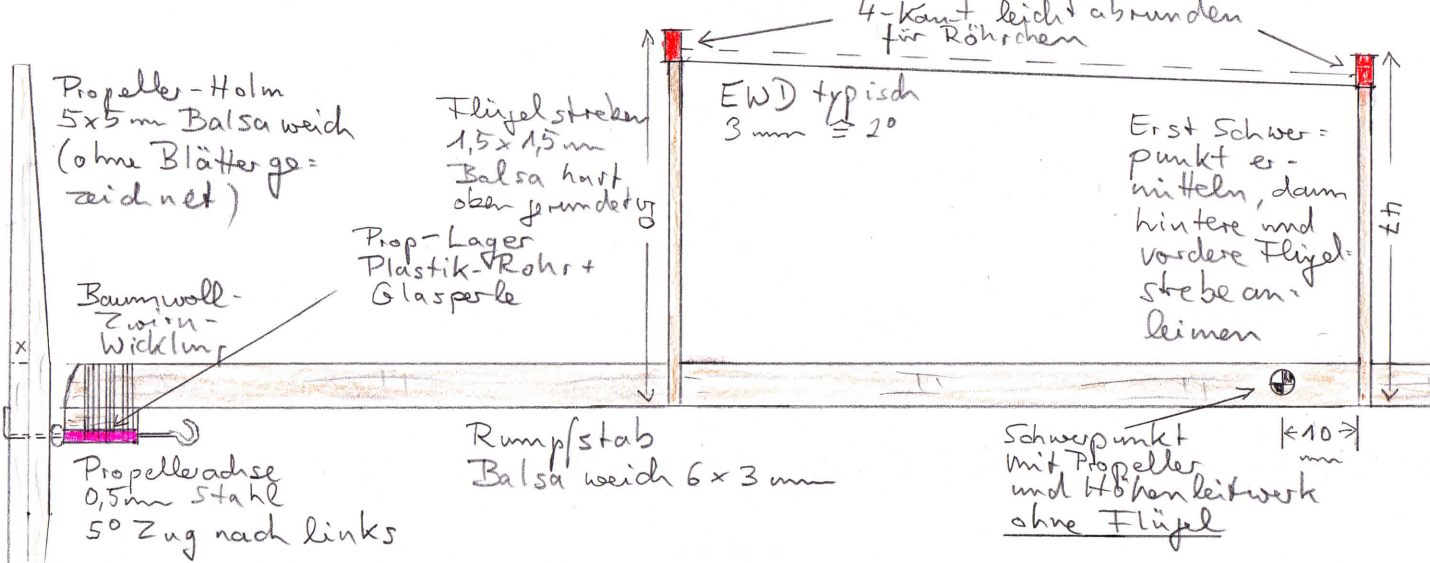 4-Kant leicht abrunden
für Röhrchen
Propeller-Holm
5x5 mm Balsa weich
(ohne Blätter ge=
zeichnet)
Flügelstreben
1,5 x 1,5 mm
Balsa hart
oben gerundet
50
EWD typisch
3 mm ≙ 2°
Erst Schwer=
punkt er-
mitteln, dann
hintere und
vordere Flügel=
strebe an=
leimen
47
Prop-Lager
Plastik-Rohr +
Glasperle
Baumwoll-
Zwirn-
Wicklung
x
Propellerachse
0,5mm Stahl
5° Zug nach links
Rumpfstab
Balsa weich 6 x 3 mm
Schwerpunkt
mit Propeller
und Höhenleitwerk
ohne Flügel
10
mm